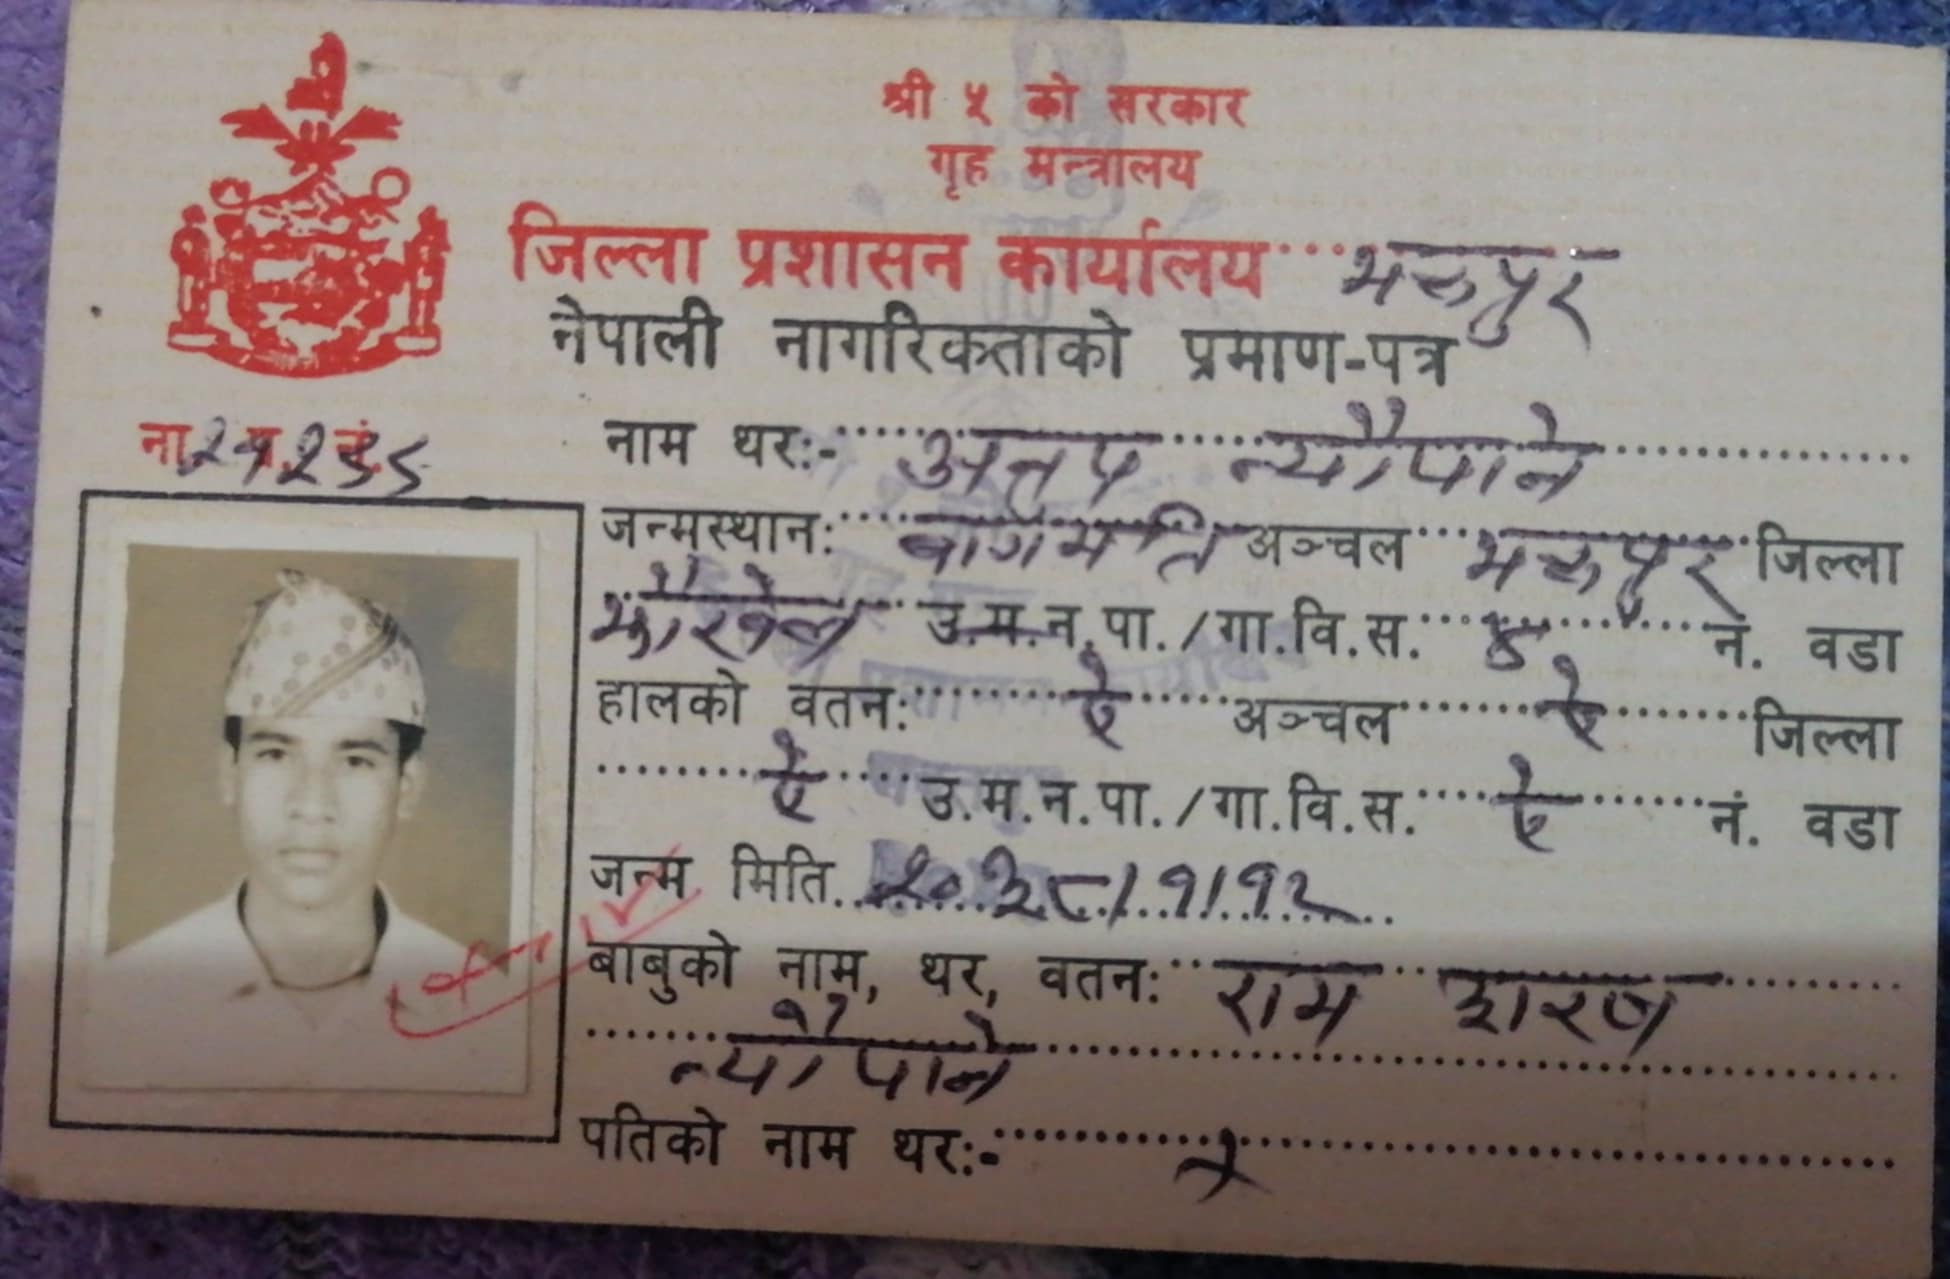 श्री ५ को सरकार
गृह मन्त्रालय
जिल्ला प्रशासन कार्यालय भक्तपुर
नेपाली नागरिकताको प्रमाण-पत्र
ना.प्र.नं.
नाम थरः- न्यौपाने
जन्मस्थानः बागमति अञ्चल भक्तपुर जिल्ला
झौखेल उ.म.न.पा./गा.वि.स. नं. वडा
हालको वतनः ऐ अञ्चल ऐ जिल्ला
ऐ उ.म.न.पा./गा.वि.स. ऐ नं. वडा
जन्म मिति २०३८/१/१२
बाबुको नाम, थर, वतनः राम शरण
न्यौपाने
पतिको नाम थरः-